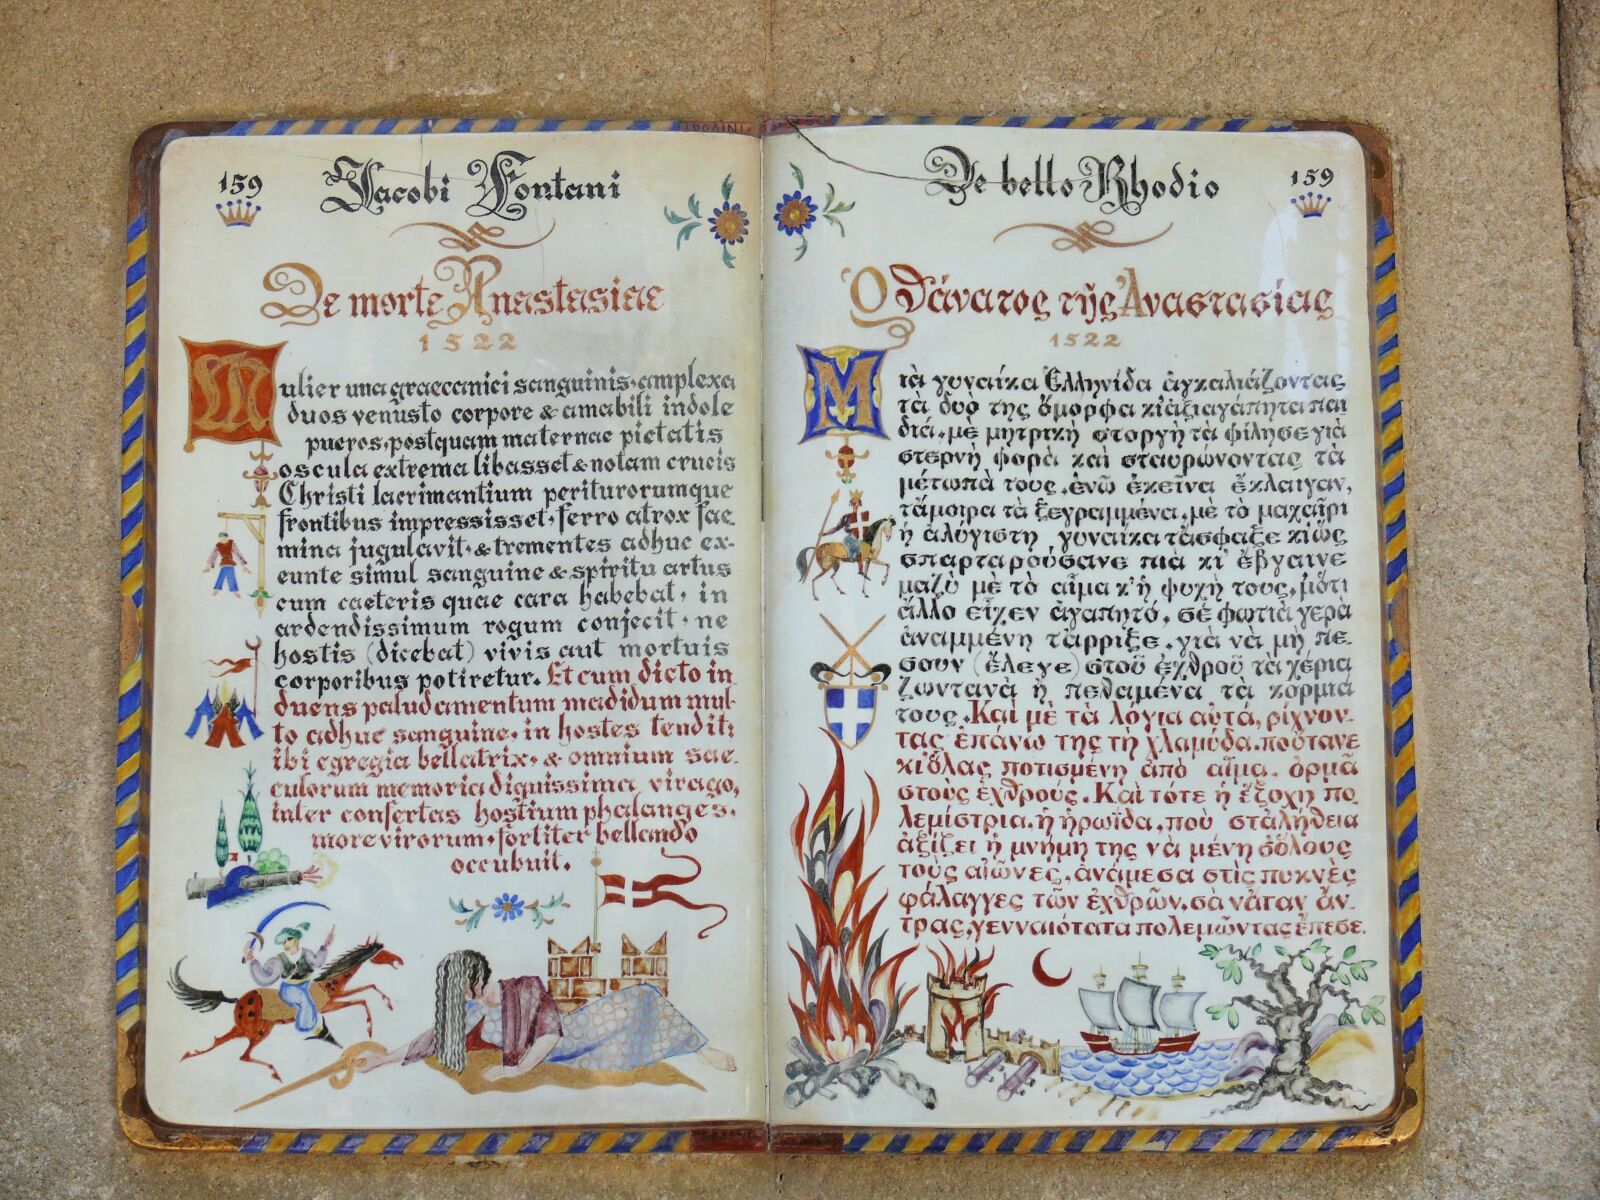 159
Jacobi Fontani
De morte Anastasiae
1522
Mulier una graecanici sanguinis, amplexa
duos venusto corpore & amabili indole
pueros, postquam maternae pietatis
oscula extrema libasset & notam crucis
Christi lacrimantium periturorumque
frontibus impressisset, ferro atrox fae-
mina jugulavit, & trementes adhuc ex-
eunte simul sanguine & spiritu artus
cum caeteris quae cara habebat, in
ardendissimum rogum conjecit, ne
hostis (dicebat) vivis aut mortuis
corporibus potiretur. Et cum dicto in
duens paludamentum madidum mul-
to adhuc sanguine, in hostes tendit;
ibi egregia bellatrix, & omnium sae-
culorum memoria dignissima virago,
inter confertas hostium phalanges,
more virorum, fortiter bellando
occubuit.
De bello Rhodio
159
Ὁ θάνατος τῆς Ἀναστασίας
1522
Μιὰ γυναίκα Ἑλληνίδα ἀγκαλιάζοντας
τὰ δυὸ της ὄμορφα κι ἀξιαγάπητα παι
διά, μὲ μητρικὴ στοργὴ τὰ φίλησε γιὰ
στερνὴ φορὰ καὶ σταυρώνοντας τὰ
μέτωπά τους, ἐνῶ ἐκεῖνα ἔκλαιγαν,
τἄμοιρα τὰ ξεγραμμένα, μὲ τὸ μαχαῖρι
ἡ ἀλόγιστη γυναίκα τἄσφαξε κι ὥς
σπαρταροῦσανε πιὰ κι' ἔβγαινε
μαζὺ μὲ τὸ αἷμα κ' ἡ ψυχή τους, μ' ὅτι
ἄλλο εἶχεν ἀγαπητό, σὲ φωτιὰ γερὰ
ἀναμμένη τἄρριξε, γιὰ νὰ μὴ πέ-
σουν (ἔλεγε) στοῦ ἐχθροῦ τὰ χέρια
ζωντανὰ ἢ πεθαμένα τὰ κορμιά
τους. Καὶ μὲ τὰ λόγια αὐτά, ρίχνον-
τας ἐπάνω της τὴ χλαμύδα, ποὔτανε
κι ὅλας ποτισμένη ἀπὸ αἷμα, ὁρμᾶ
στοὺς ἐχθρούς. Καὶ τότε ἡ ἔξοχη πο-
λεμίστρια, ἡ ἡρωΐδα, ποὺ στ' ἀλήθεια
ἀξίζει ἡ μνήμη της νὰ μένη σ' ὅλους
τοὺς αἰῶνες, ἀνάμεσα στὶς πυκνὲς
φάλαγγες τῶν ἐχθρῶν, σὰ νἄταν ἄν-
τρας, γενναιότατα πολεμῶντας ἔπεσε.